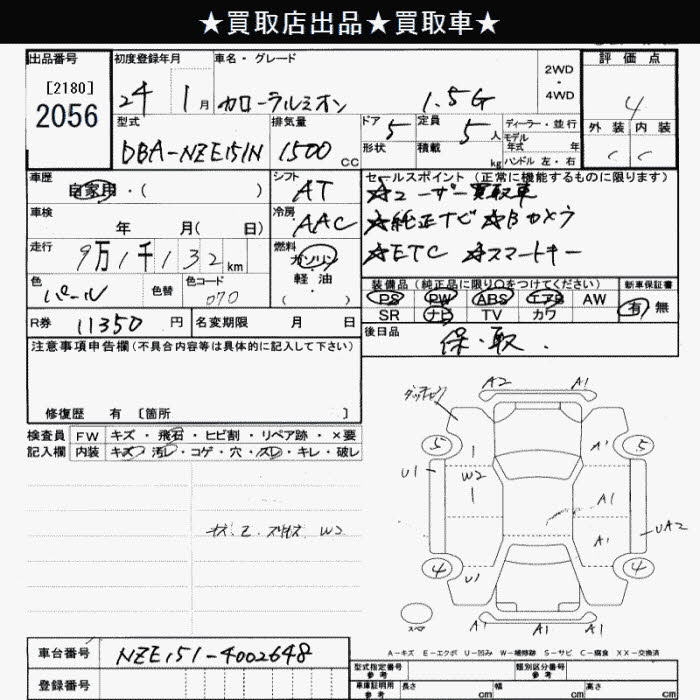 ★買取店出品★買取車★
出品番号
[2180]
2056
初度登録年月
24 1月
車名・グレード
カローラルミオン 1.5G
2WD
・
4WD
評価点
4
外装 内装
C C
型式
DBA-NZE151N
排気量
1500 CC
ドア 5
形状
定員 5人
積載 kg
ディーラー・並行
モデル
年式 年
ハンドル 左・右
車歴
自家用・( )
シフト
AT
セールスポイント (正常に機能するものに限ります)
☆ユーザー買取車
☆純正ナビ ☆Bカメラ
☆ETC ☆スマートキー
車検
年 月( 日)
冷房
AAC
走行
9万1千132km
燃料
ガソリン
軽油
( )
色
パール
色替
色コード
070
装備品 (純正品に限り〇をつけてください)
PS PW ABS エアB AW
SR ナビ TV カワ
新車保証書
有 無
R券 11350円
名変期限 月 日
後日品
保・取.
注意事項申告欄 (不具合内容等は具体的に記入して下さい)
修復歴 有 〔箇所 〕
検査員
記入欄
FW キズ・飛石・ヒビ割・リペア跡・×要
内装 キズ・汚レ・コゲ・穴・スレ・キレ・破レ
W2
A2 A1
5 1 A' 5
U1 W2
1 A1
UA2
A1
4 U1 4
スペア
A1 A1 A1
A-キズ E-エクボ U-凹み W-補修跡 S-サビ C-腐食 XX-交換済
車台番号
NZE151-4002648
登録番号
型式指定番号
参考
類別区分番号
参考
車庫証明用
参考
長さ cm
幅 cm
高さ cm